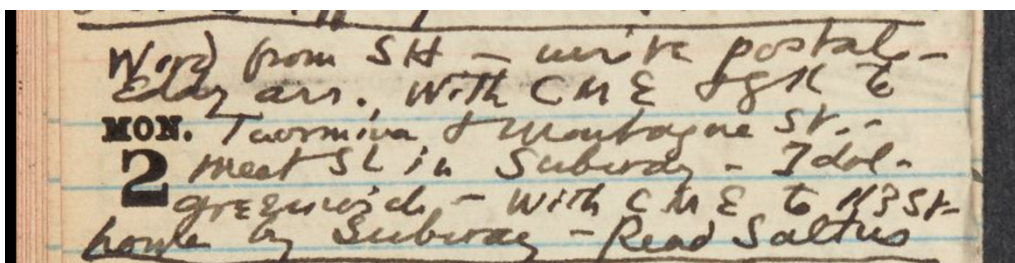 Word from SH – write postal –
Eday arr. With CME & gK to
MON. Taormina & Montague St. –
2 meet SL in Subway – Idol –
Greenwich – With CME to 113 St –
home by Subway – Read Saltus